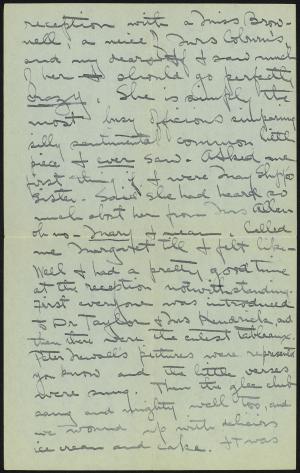 reception with a Miss Brow-
nell, a niece of Mrs Coburn's,
and my dear! If I saw much
of her I should go perfectly
crazy. She is simply the
most busy officious simpering
silly sentimental common little
piece I ever saw. Asked me
first thing if I were May Shipp's
sister. Said she had heard so
much about her from Mrs Allen
oh no - Mary I mean. Called
me Margaret till I felt like -
Well I had a pretty good time
at the reception notwithstanding.
First everyone was introduced
to Dr. Taylor & Mrs Hendricks, and
then there were the cutest tableaux.
Peter Newell's pictures were represented
you know and the little verses
were sung. Then the glee club
sang and mighty well too, and
we wound up with
ice cream and cake. It was